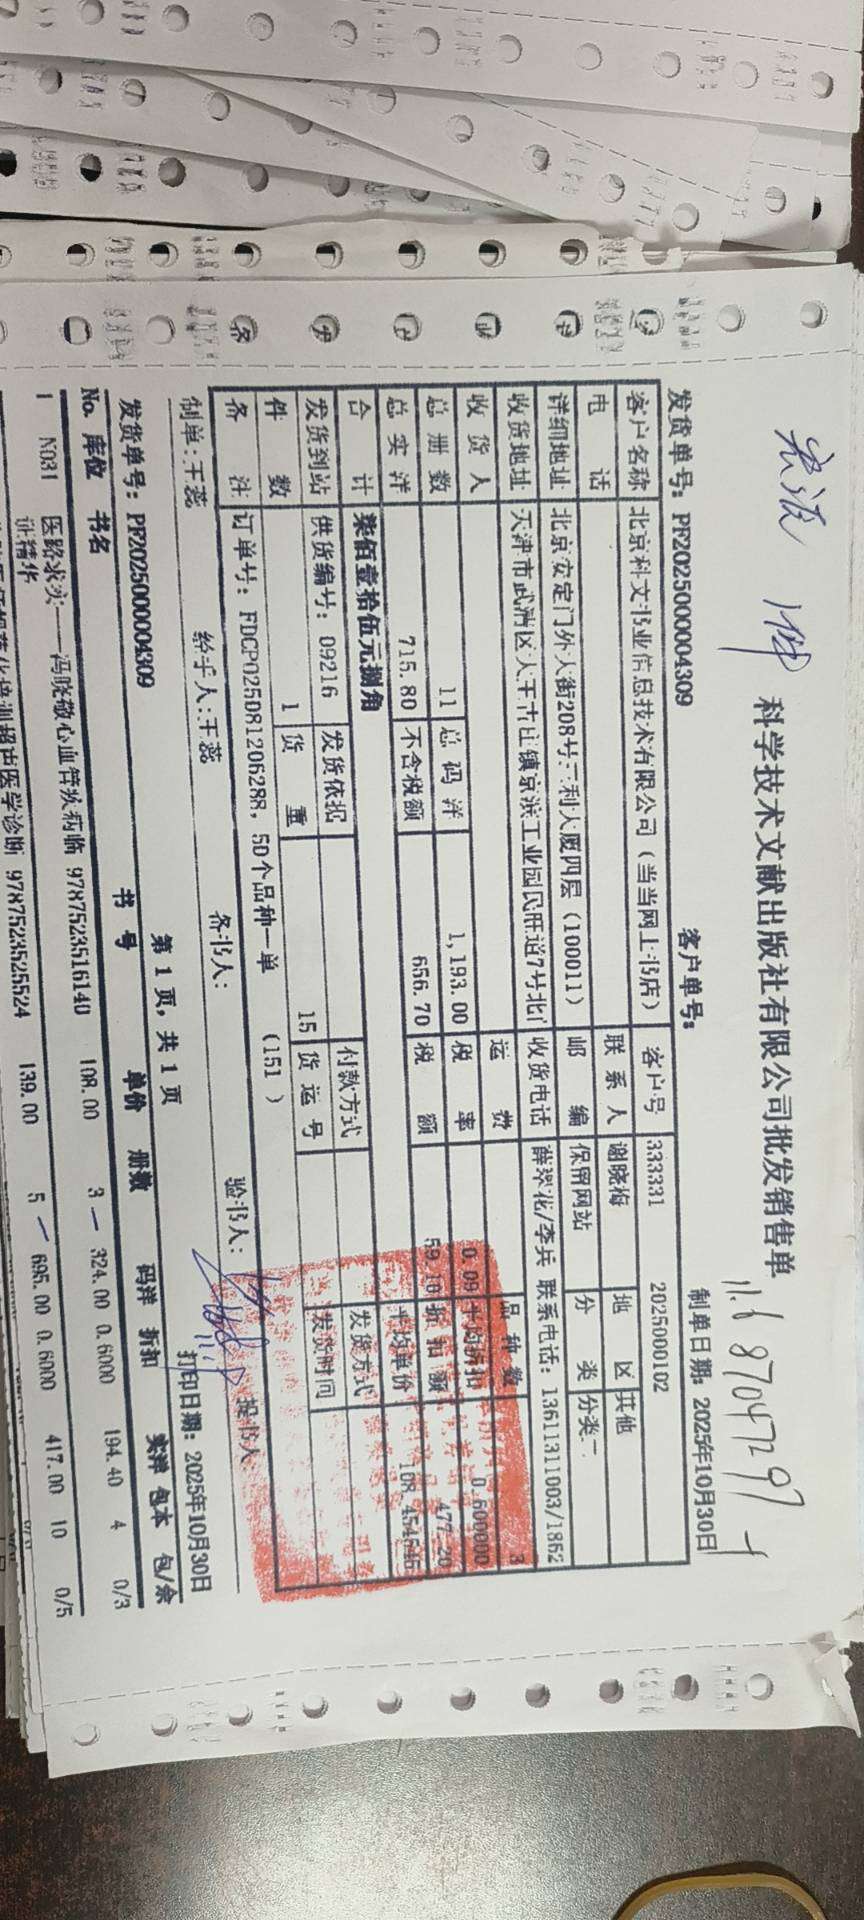 科学技术文献出版社有限公司批发销售单
11.6 87047297-1
发货单号: PF2025000004309 客户单号: 制单日期: 2025年10月30日
客户名称 北京科文书业信息技术有限公司(当当网上书店) 客户号 333331 2025000102
电 话 联系人 谢晓梅 地 区 其他
详细地址 北京安定门外大街208号三利大厦四层(100011) 邮 编 保留网站 分 类 分类二
收货地址 天津市武清区大王古庄镇京滨工业园民旺道7号北门 收货电话 薛翠花/李兵 联系电话: 13611311003/1862
收货人 运 费 品种数 3
总册数 11 总码洋 1,193.00 税 率 0.09 平均折扣 0.600000
总实洋 715.80 不含税额 656.70 税 额 59.10 折扣额 477.20
合 计 柒佰壹拾伍元捌角 平均单价 108.454545
发货到站 供货编号: 09216 发货依据 付款方式 发货方式
件 数 1 货 重 15 货运号 发货时间
备 注 订单号: FDCP025081206288, 50个品种一单 (151 )
制单: 王蕊 经手人: 王蕊 备书人: 验书人: 提书人:
第 1 页, 共 1 页 打印日期: 2025年10月30日
发货单号: PF2025000004309
No. 库位 书名 书 号 单价 册数 码洋 折扣 实洋 包本 包/余
1 N031 医路求实——冯晓敬心血管疾病临 9787523516140 108.00 3 324.00 0.6000 194.40 4 0/3
证精华
培训超声医学诊断 9787523525524 139.00 5 695.00 0.6000 417.00 10 0/5